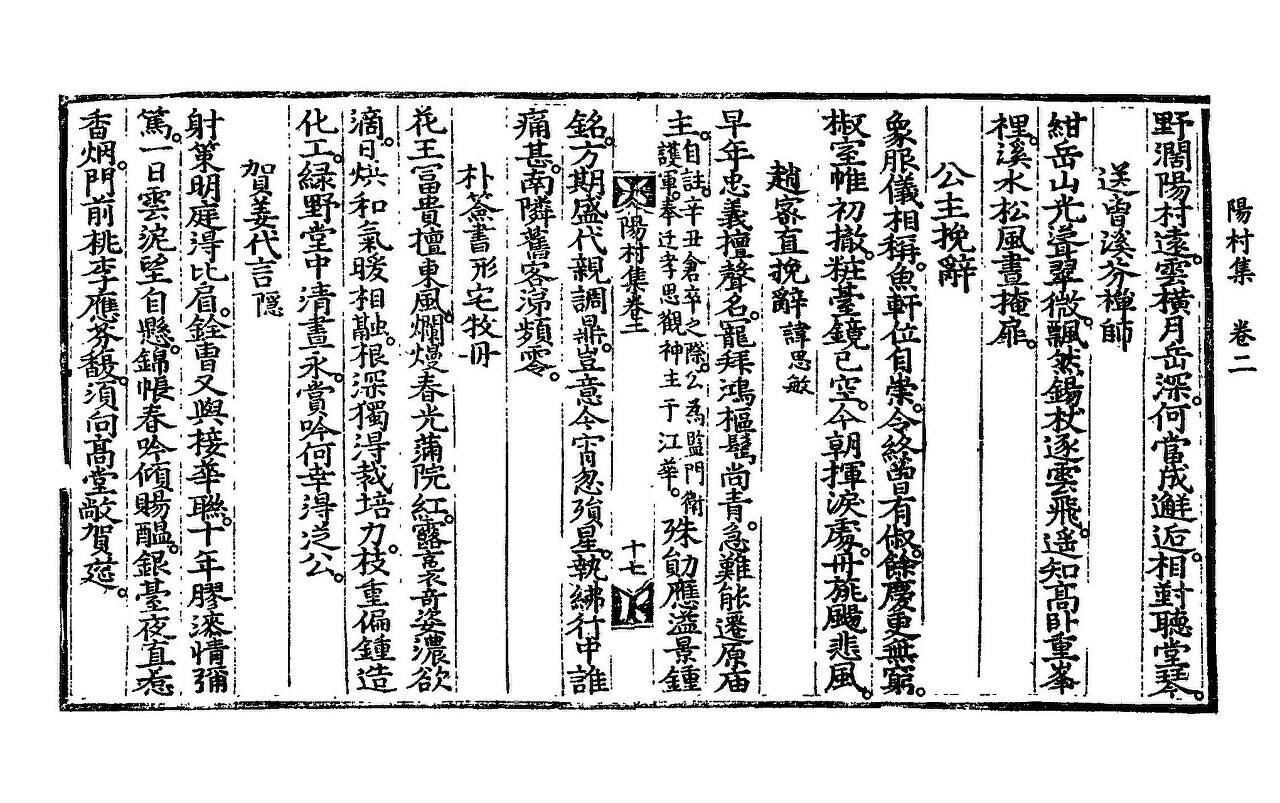 陽村集 卷二
野濶陽村遠。雲橫月岳深。何當成邂逅。相對聽堂琴。
送曾溪芬禪師
紺岳山光澄翠微。飄然錫杖逐雲飛。遥知高卧重峯
裡。溪水松風晝掩扉。
公主挽辭
象服儀相稱。魚軒位自崇。令終曾有俶。餘慶更無窮。
椒室帷初撤。粧臺鏡已空。今朝揮淚處。丹旐颺悲風。
趙密直挽辭 諱思敏
早年忠義擅聲名。寵拜鴻樞鬢尚青。急難能遷原庙
主。自註。辛丑倉卒之際。公爲監門衛
護軍。奉迁孝思觀神主于江華。殊勛應溢景鍾
陽村集卷二 十七
銘。方期盛代親調鼎。豈意今宵忽殞星。執紼行中誰
痛甚。南隣舊客涕頻零。
朴簽書形宅牧丹
花王冨貴擅東風。爛熳春光蒲院紅。露裛奇姿濃欲
滴。日烘和氣暖相融。根深獨淂栽培力。枝重偏鍾造
化工。綠野堂中清晝永。賞吟何幸得從公。
賀姜代言 隱
射策明庭淂比肩。銓曹又與接華聯。十年膠漆情彌
篤。一日雲泥望自懸。錦帳春吟傾賜醞。銀臺夜直惹
香烟。門前桃李應芬馥。須向高堂敞賀筵。